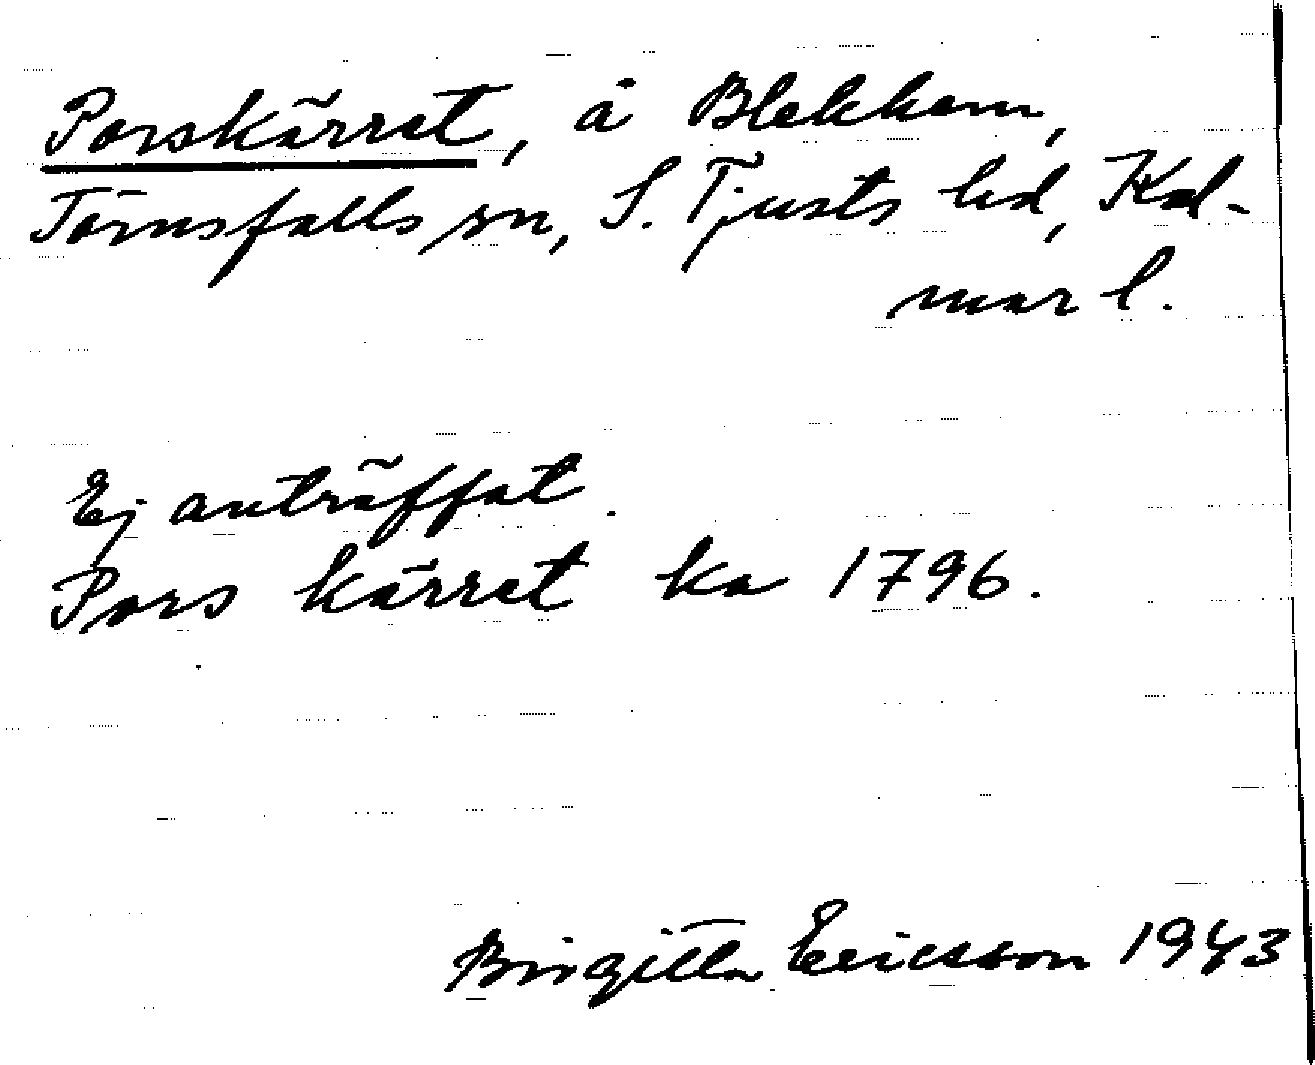 Porskärret, å Blekhem,
Törnsfalls sn, S. Tjusts hd, Kal-
mar l.
Ej anträffat.
Pors kärret ka 1796.
Birgitta Ericsson 1943